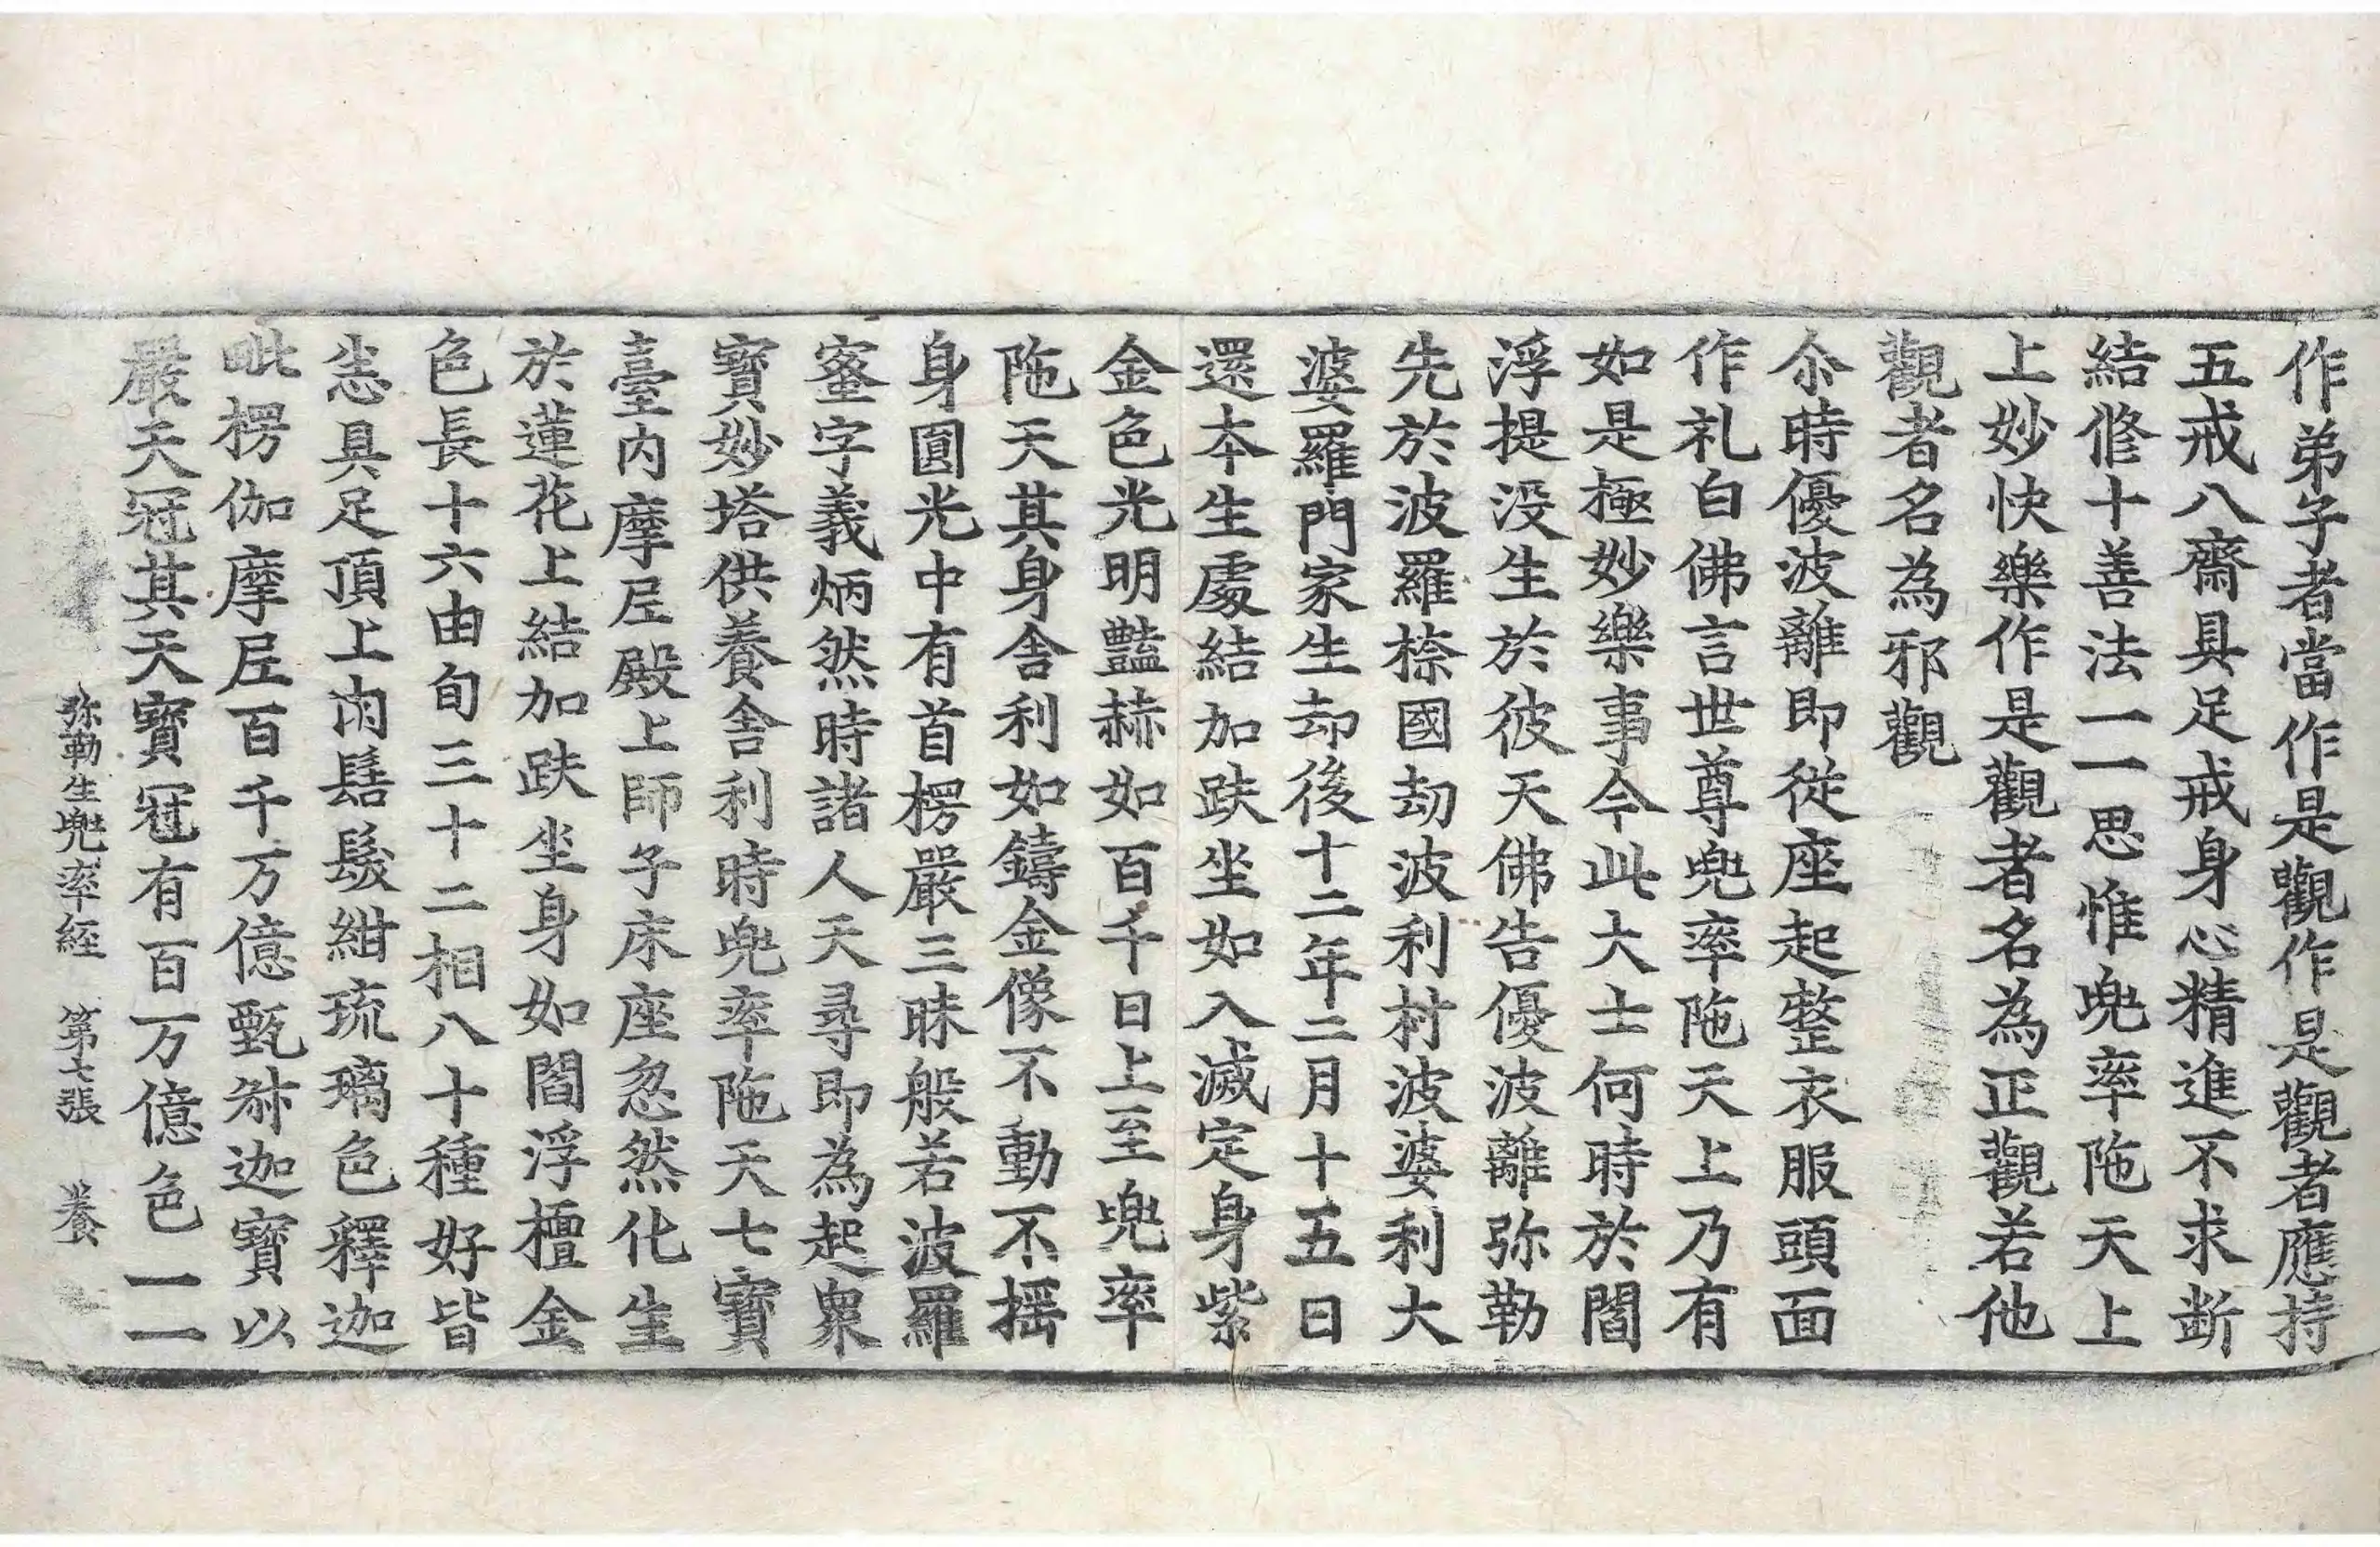 作弟子者當作是觀作是觀者應持
五戒八齋具足戒身心精進不求断
結修十善法一一思惟兜率陁天上
上妙快樂作是觀者名為正觀若他
觀者名為邪觀
尒時優波離即從座起整衣服頭面
作礼白佛言世尊兜率陁天上乃有
如是極妙樂事今此大士何時於閻
浮提没生於彼天佛告優波離弥勒
先於波羅㮈國劫波利村波婆利大
婆羅門家生却後十二年二月十五日
還本生處結加趺坐如入滅定身紫
金色光明豔赫如百千日上至兜率
陁天其身舍利如鑄金像不動不揺
身圓光中有首楞嚴三昧般若波羅
蜜字義炳然時諸人天尋即為起衆
寶妙塔供養舍利時兜率陁天七寶
臺内摩尼殿上師子床座忽然化生
於蓮花上結加趺坐身如閻浮檀金
色長十六由旬三十二相八十種好皆
悉具足頂上肉髻髮紺琉璃色釋迦
毗楞伽摩尼百千万億甄叔迦寶以
嚴天冠其天寶冠有百万億色一一
弥勒生兜率經 第七張 養